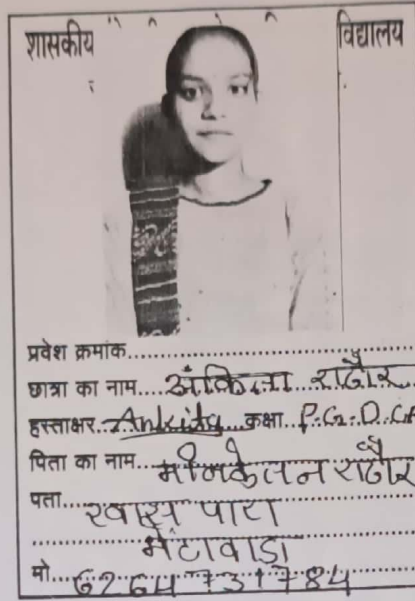 शासकीय विद्यालय
प्रवेश क्रमांक..........................
छात्रा का नाम....अंकिता राठौर....
हस्ताक्षर..Ankita..कक्षा..P.G.D.CA
पिता का नाम....मीनकेतन राठौर
पता....खास पारा
मेंटावाडा
मो....6264731784